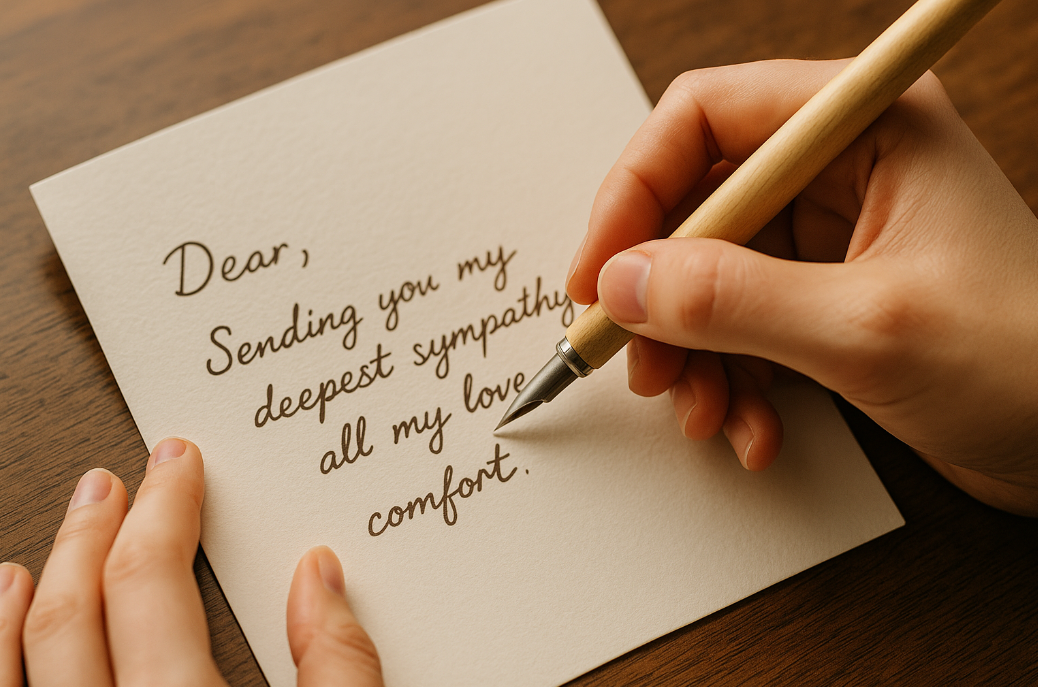 Dear,
Sending you my
deepest sympathy
all my love
comfort.